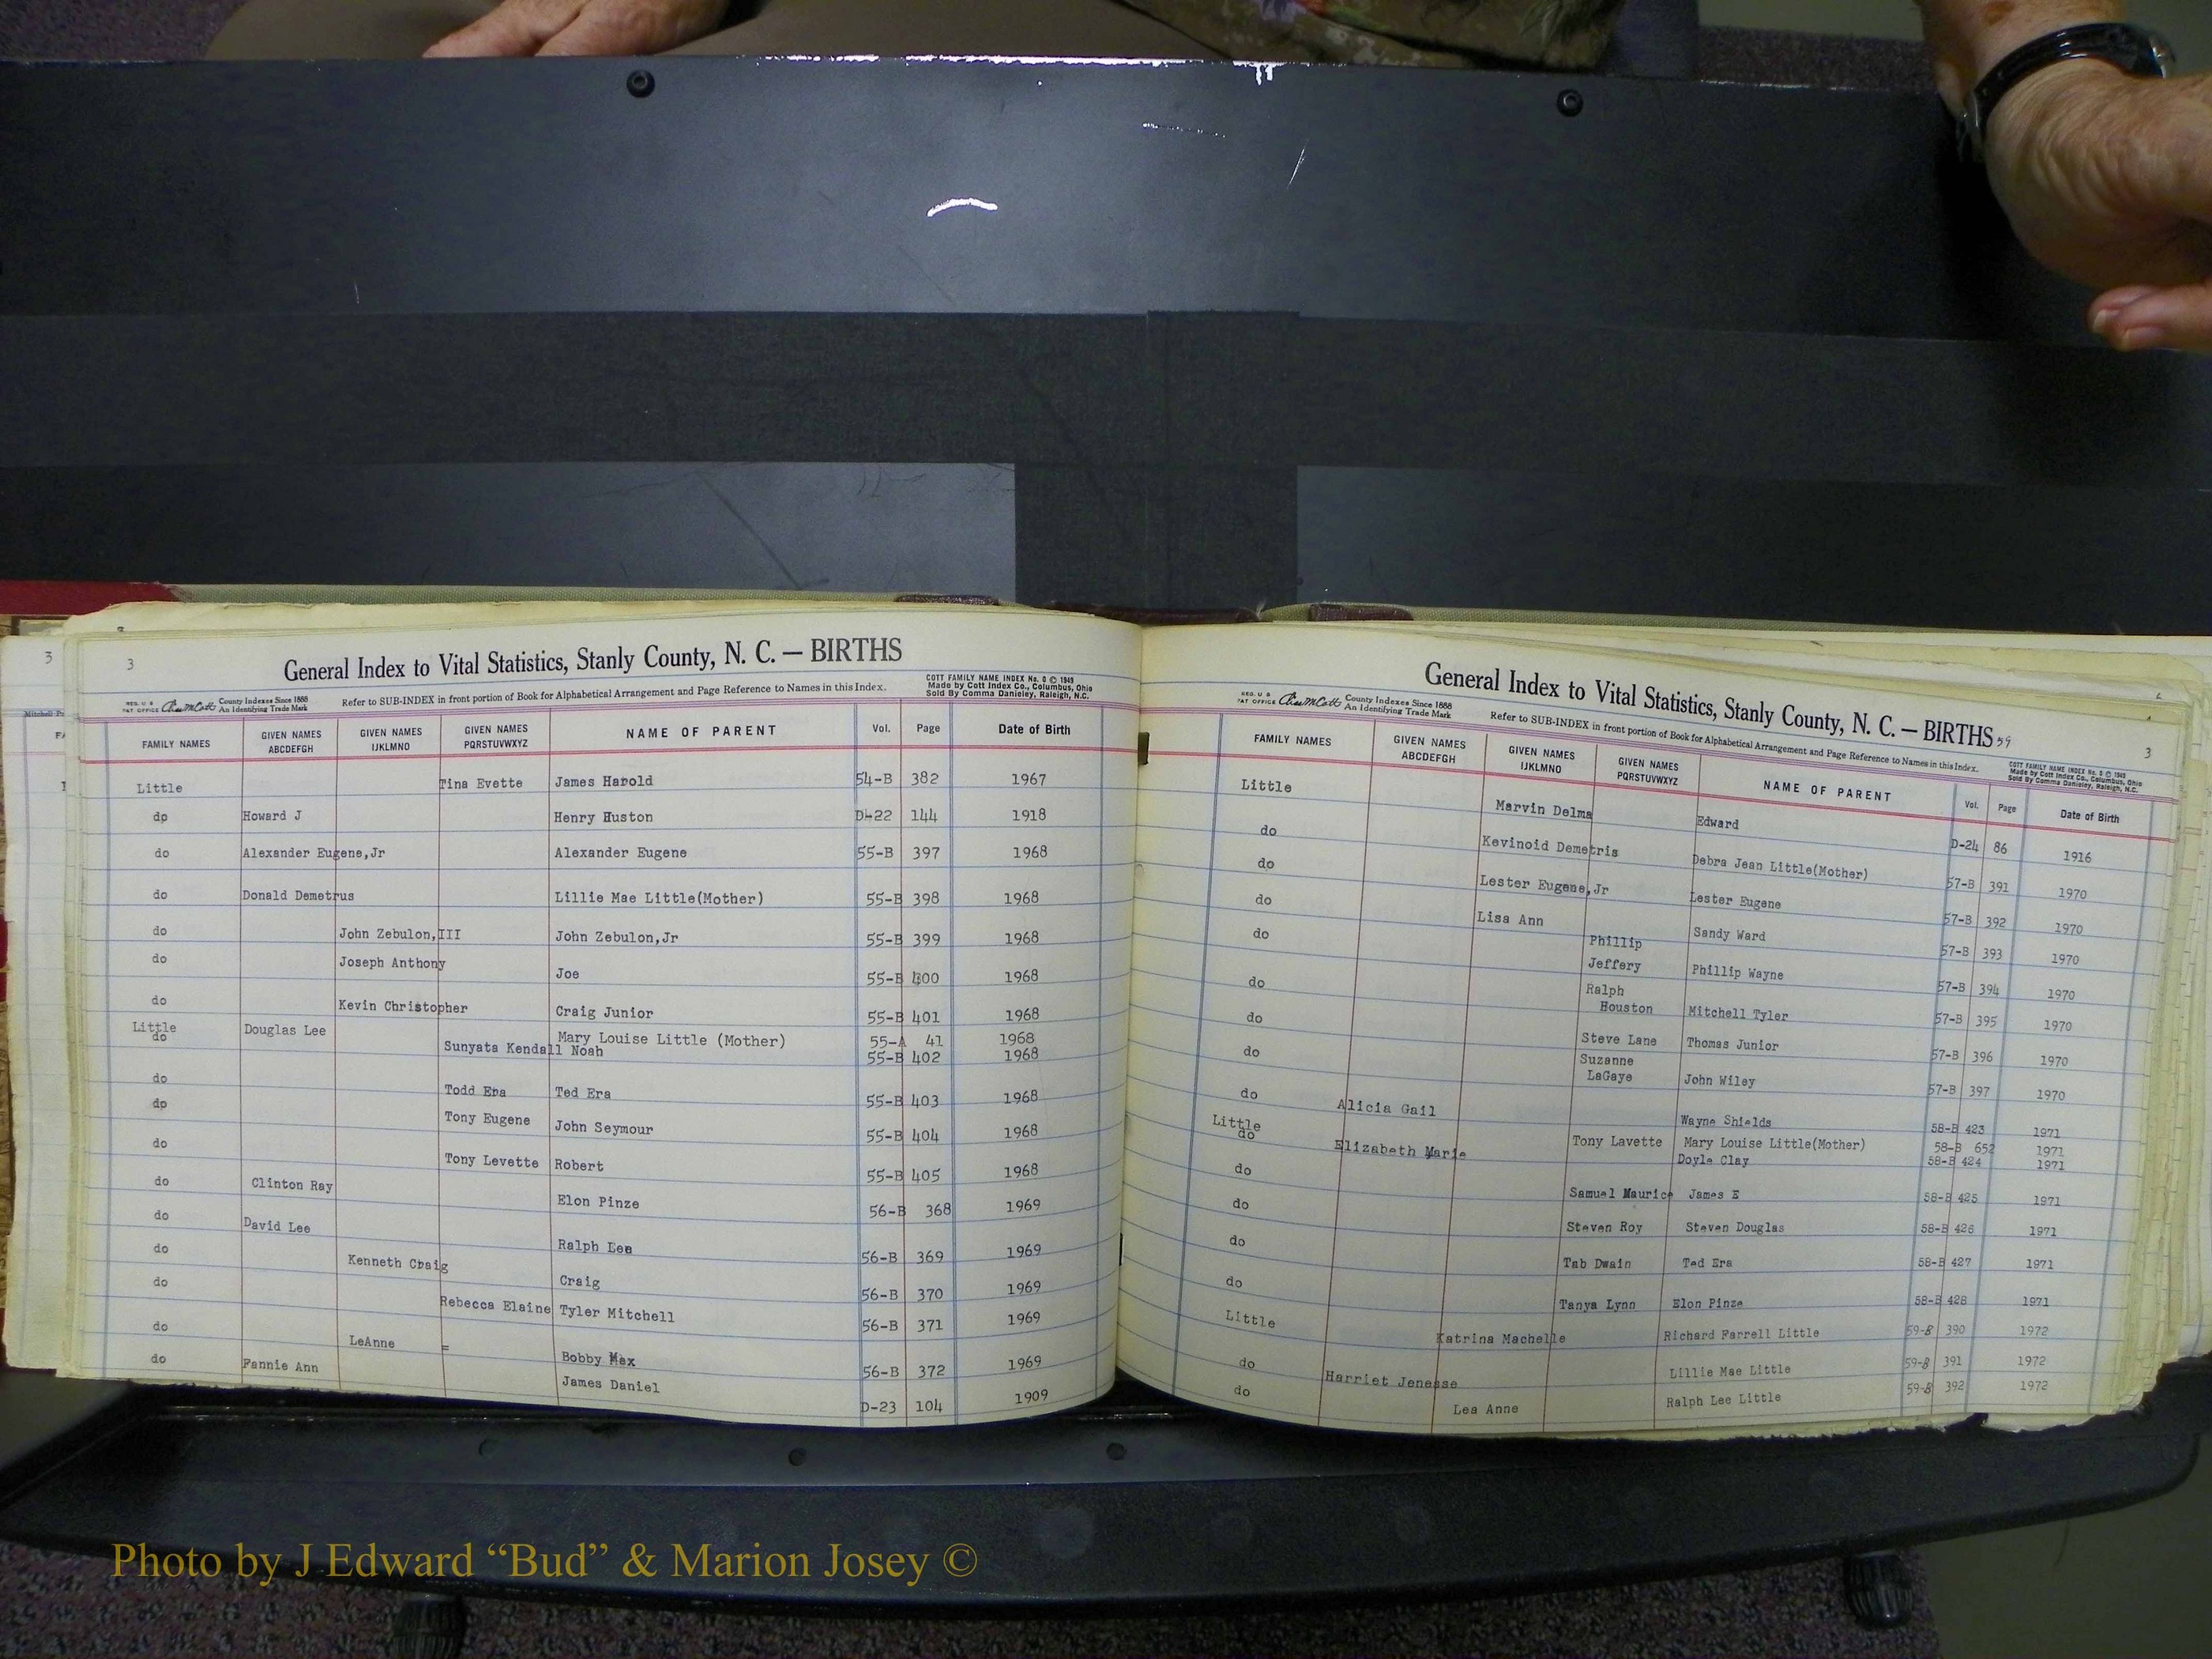 3
3
General Index to Vital Statistics, Stanly County, N. C. — BIRTHS
REG. U S PAT OFFICE County Indexes Since 1888 An Identifying Trade Mark
Refer to SUB-INDEX in front portion of Book for Alphabetical Arrangement and Page Reference to Names in this Index.
COTT FAMILY NAME INDEX No. 0 © 1949
Made by Cott Index Co., Columbus, Ohio
Sold By Comma Danieley, Raleigh, N.C.
FAMILY NAMES GIVEN NAMES ABCDEFGH GIVEN NAMES IJKLMNO GIVEN NAMES PQRSTUVWXYZ NAME OF PARENT Vol. Page Date of Birth
Little Tina Evette James Harold 54-B 382 1967
do Howard J Henry Huston D-22 144 1918
do Alexander Eugene,Jr Alexander Eugene 55-B 397 1968
do Donald Demetrus Lillie Mae Little(Mother) 55-B 398 1968
do John Zebulon,III John Zebulon,Jr 55-B 399 1968
do Joseph Anthony Joe 55-B 400 1968
do Kevin Christopher Craig Junior 55-B 401 1968
Little Douglas Lee Mary Louise Little (Mother) 55-A 41 1968
do Sunyata Kendall Noah 55-B 402 1968
do Todd Era Ted Era 55-B 403 1968
do Tony Eugene John Seymour 55-B 404 1968
do Tony Levette Robert 55-B 405 1968
do Clinton Ray Elon Pinze 56-B 368 1969
do David Lee Ralph Lee 56-B 369 1969
do Kenneth Craig Craig 56-B 370 1969
do Rebecca Elaine Tyler Mitchell 56-B 371 1969
do LeAnne = Bobby Max 56-B 372 1969
do Fannie Ann James Daniel D-23 104 1909
General Index to Vital Statistics, Stanly County, N. C. — BIRTHS 59
3
REG. U S PAT OFFICE County Indexes Since 1888 An Identifying Trade Mark
Refer to SUB-INDEX in front portion of Book for Alphabetical Arrangement and Page Reference to Names in this Index.
COTT FAMILY NAME INDEX No. 0 © 1949
Made by Cott Index Co., Columbus, Ohio
Sold By Comma Danieley, Raleigh, N.C.
FAMILY NAMES GIVEN NAMES ABCDEFGH GIVEN NAMES IJKLMNO GIVEN NAMES PQRSTUVWXYZ NAME OF PARENT Vol. Page Date of Birth
Little Marvin Delma Edward D-24 86 1916
do Kevinoid Demetris Debra Jean Little(Mother) 57-B 391 1970
do Lester Eugene,Jr Lester Eugene 57-B 392 1970
do Lisa Ann Sandy Ward 57-B 393 1970
do Phillip Jeffery Phillip Wayne 57-B 394 1970
do Ralph Houston Mitchell Tyler 57-B 395 1970
do Steve Lane Thomas Junior 57-B 396 1970
do Suzanne LaGaye John Wiley 57-B 397 1970
do Alicia Gail Wayne Shields 58-B 423 1971
Little Tony Lavette Mary Louise Little(Mother) 58-B 652 1971
do Elizabeth Marie Doyle Clay 58-B 424 1971
do Samuel Maurice James E 58-B 425 1971
do Steven Roy Steven Douglas 58-B 426 1971
do Tab Dwain Ted Era 58-B 427 1971
do Tanya Lynn Elon Pinze 58-B 428 1971
Little Katrina Machelle Richard Farrell Little 59-B 390 1972
do Harriet Jenesse Lillie Mae Little 59-B 391 1972
do Lea Anne Ralph Lee Little 59-B 392 1972
Photo by J Edward “Bud” & Marion Josey ©